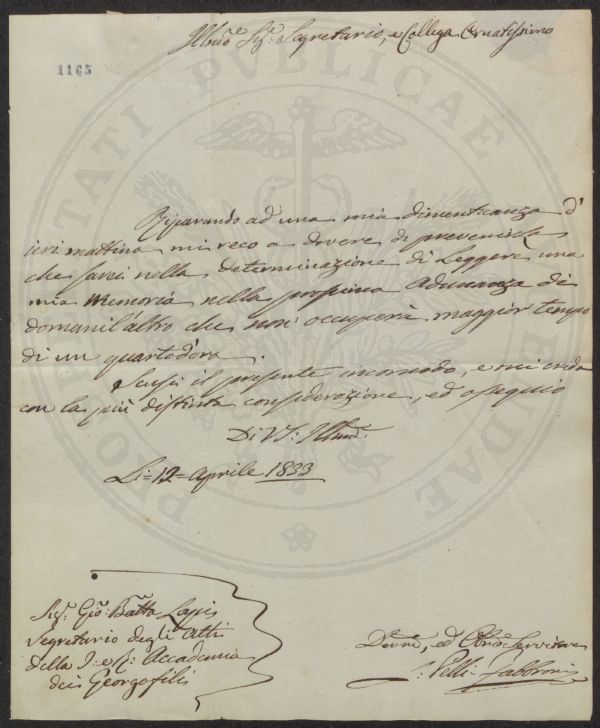 Illmo Sigr: Segretario, e Collega Ornatissimo
1165
Riparando ad una mia dimenticanza d'
ieri mattina mi reco a dovere di prevenirla
che sarei nella determinazione di Leggere una
mia Memoria nella prossima Adunanza di
domani l'altro che non occuperà maggior tempo
di un quarto d'ora.
Scusi il presente incomodo, e mi creda
con la più distinta considerazione, ed ossequio
Di VS: Illma:
Li=12=Aprile 1833
Sigr: Gio: Batta Lapi
Segretario degli Atti
della I: e R: Accademia
dei Georgofili
Devmo, ed Obbmo Servitore
Pelli-Fabbroni
PROSPERITATI PVBLICAE AVGENDAE